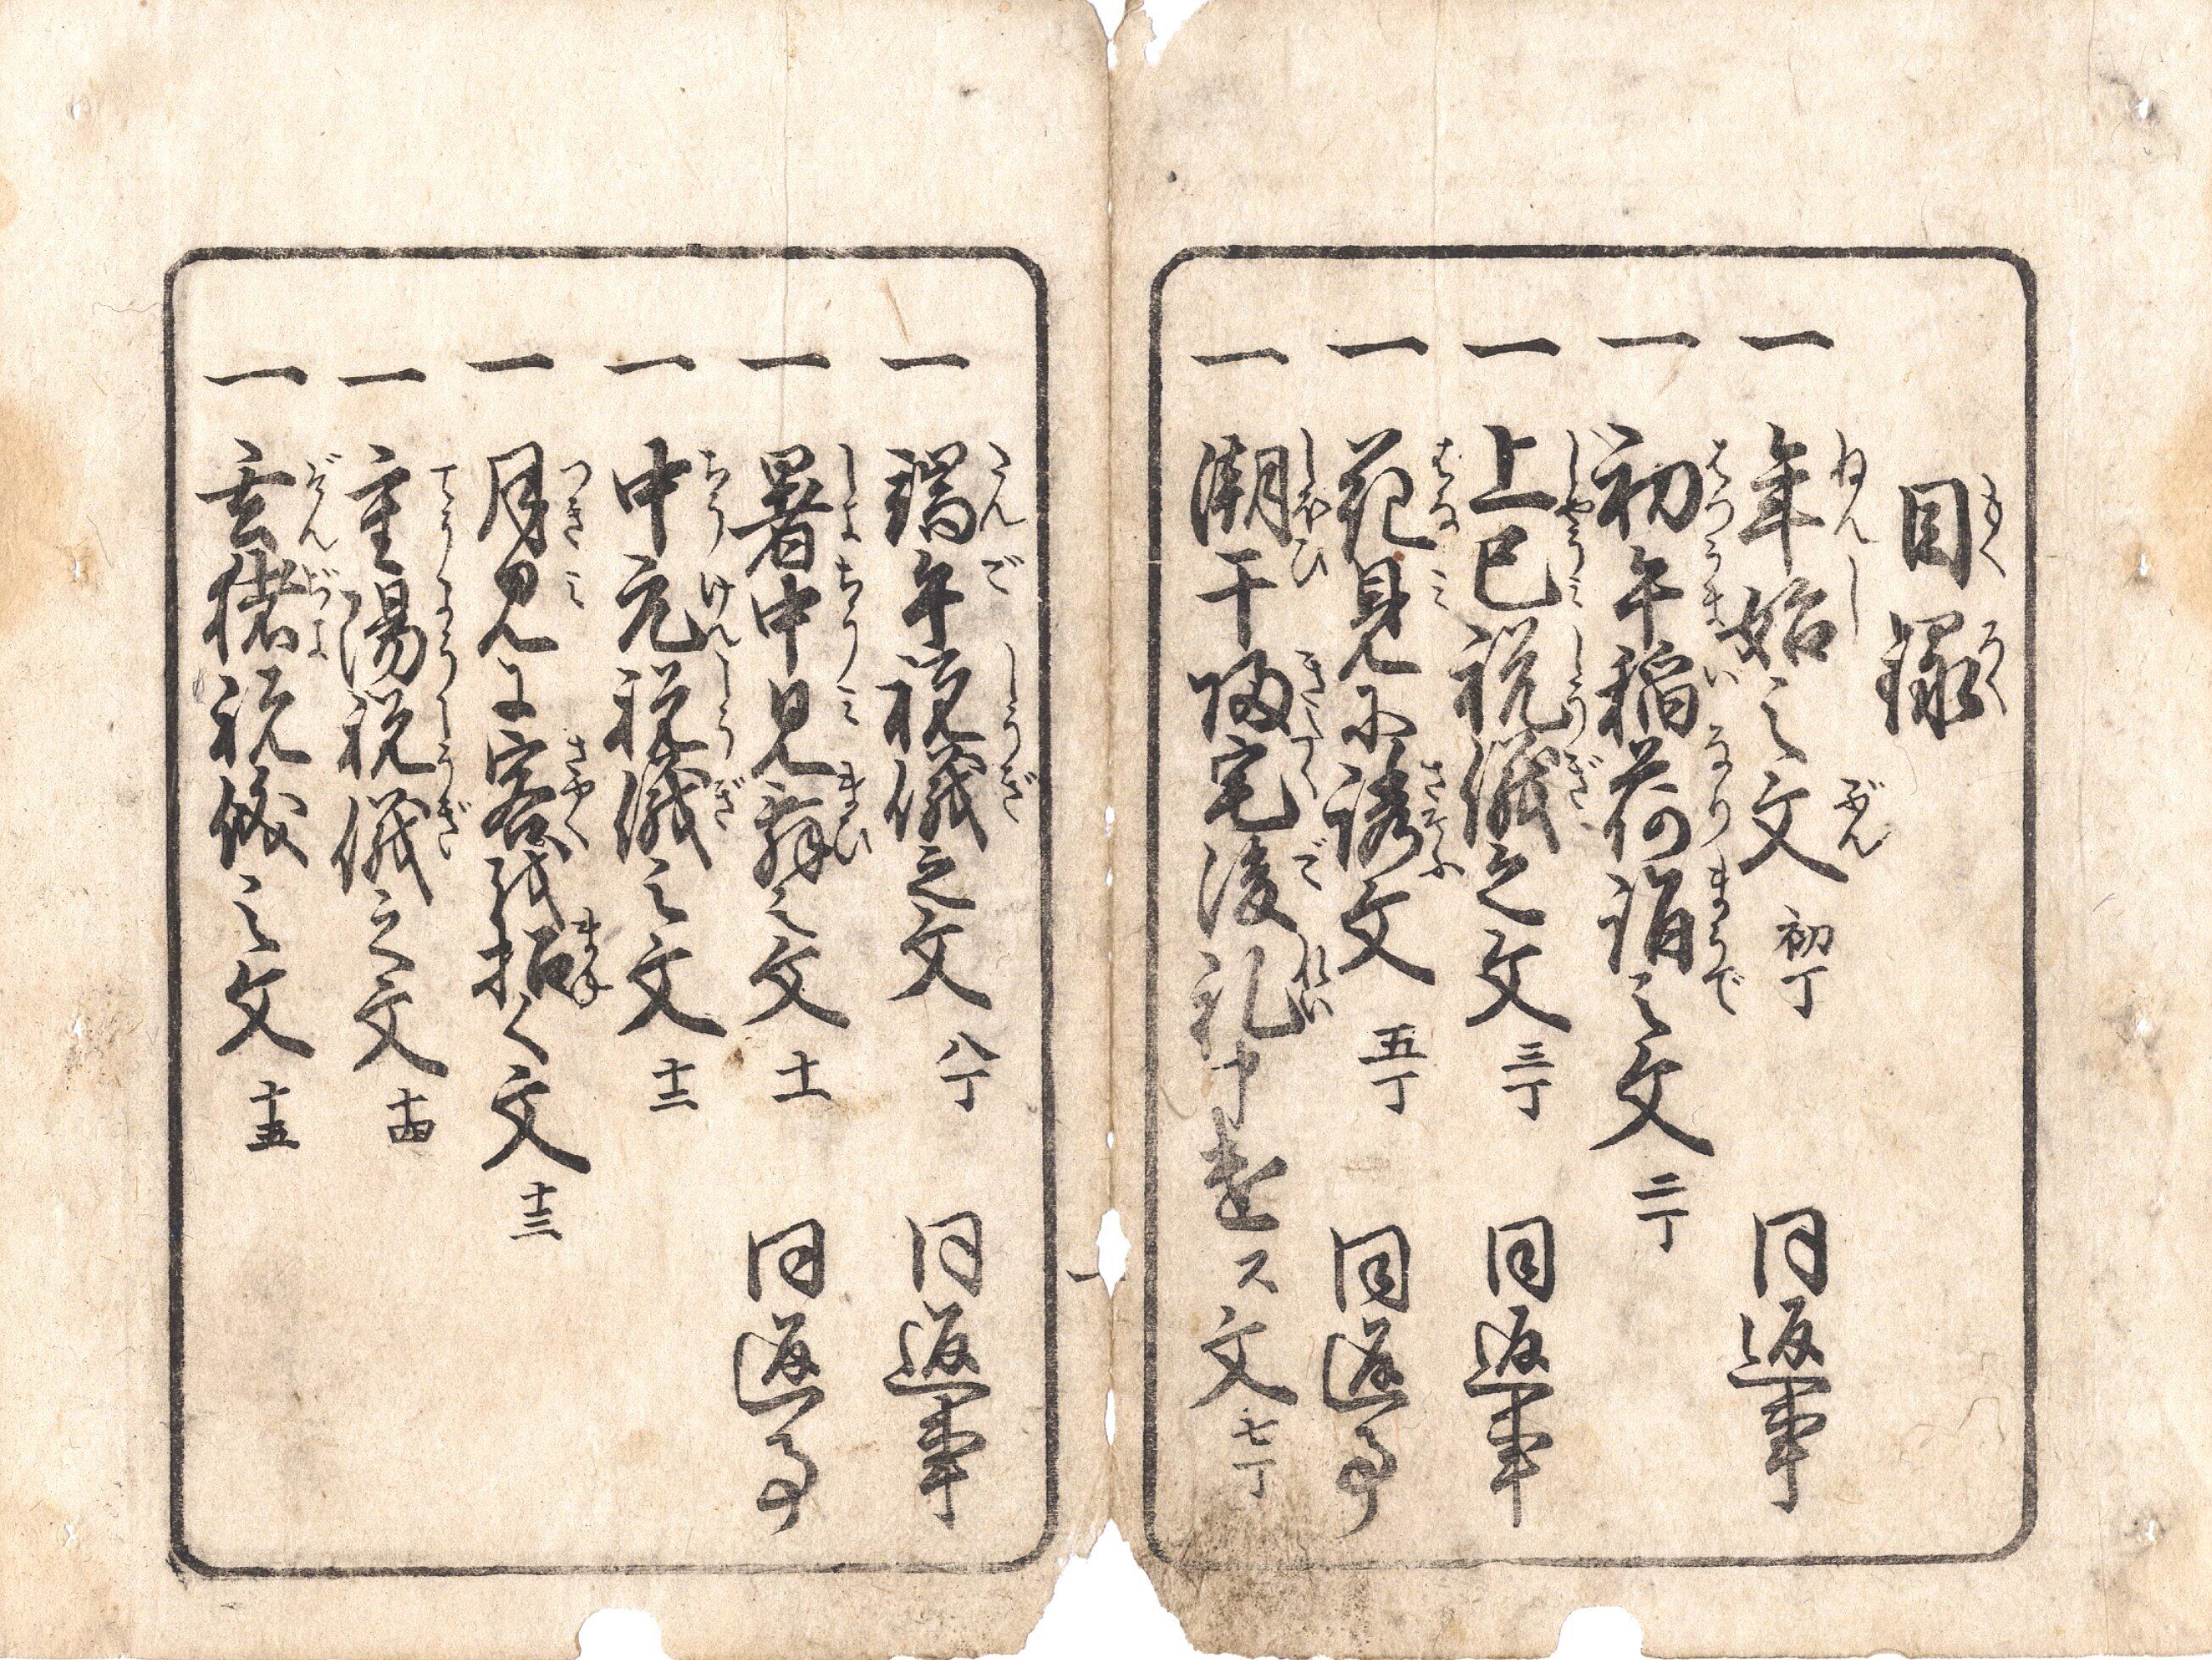 目録
一 年始之文 初丁 同返事
一 初午稲荷詣之文 二丁
一 上巳祝儀之文 三丁 同返事
一 花見に誘文 五丁 同返事
一 潮干帰宅後礼申遣ス文 七丁
一 端午祝儀之文 八丁 同返事
一 暑中見舞之文 十一 同返事
一 中元祝儀之文 十二
一 月見に客を招く文 十三
一 重陽祝儀之文 十四
一 玄猪祝儀之文 十五